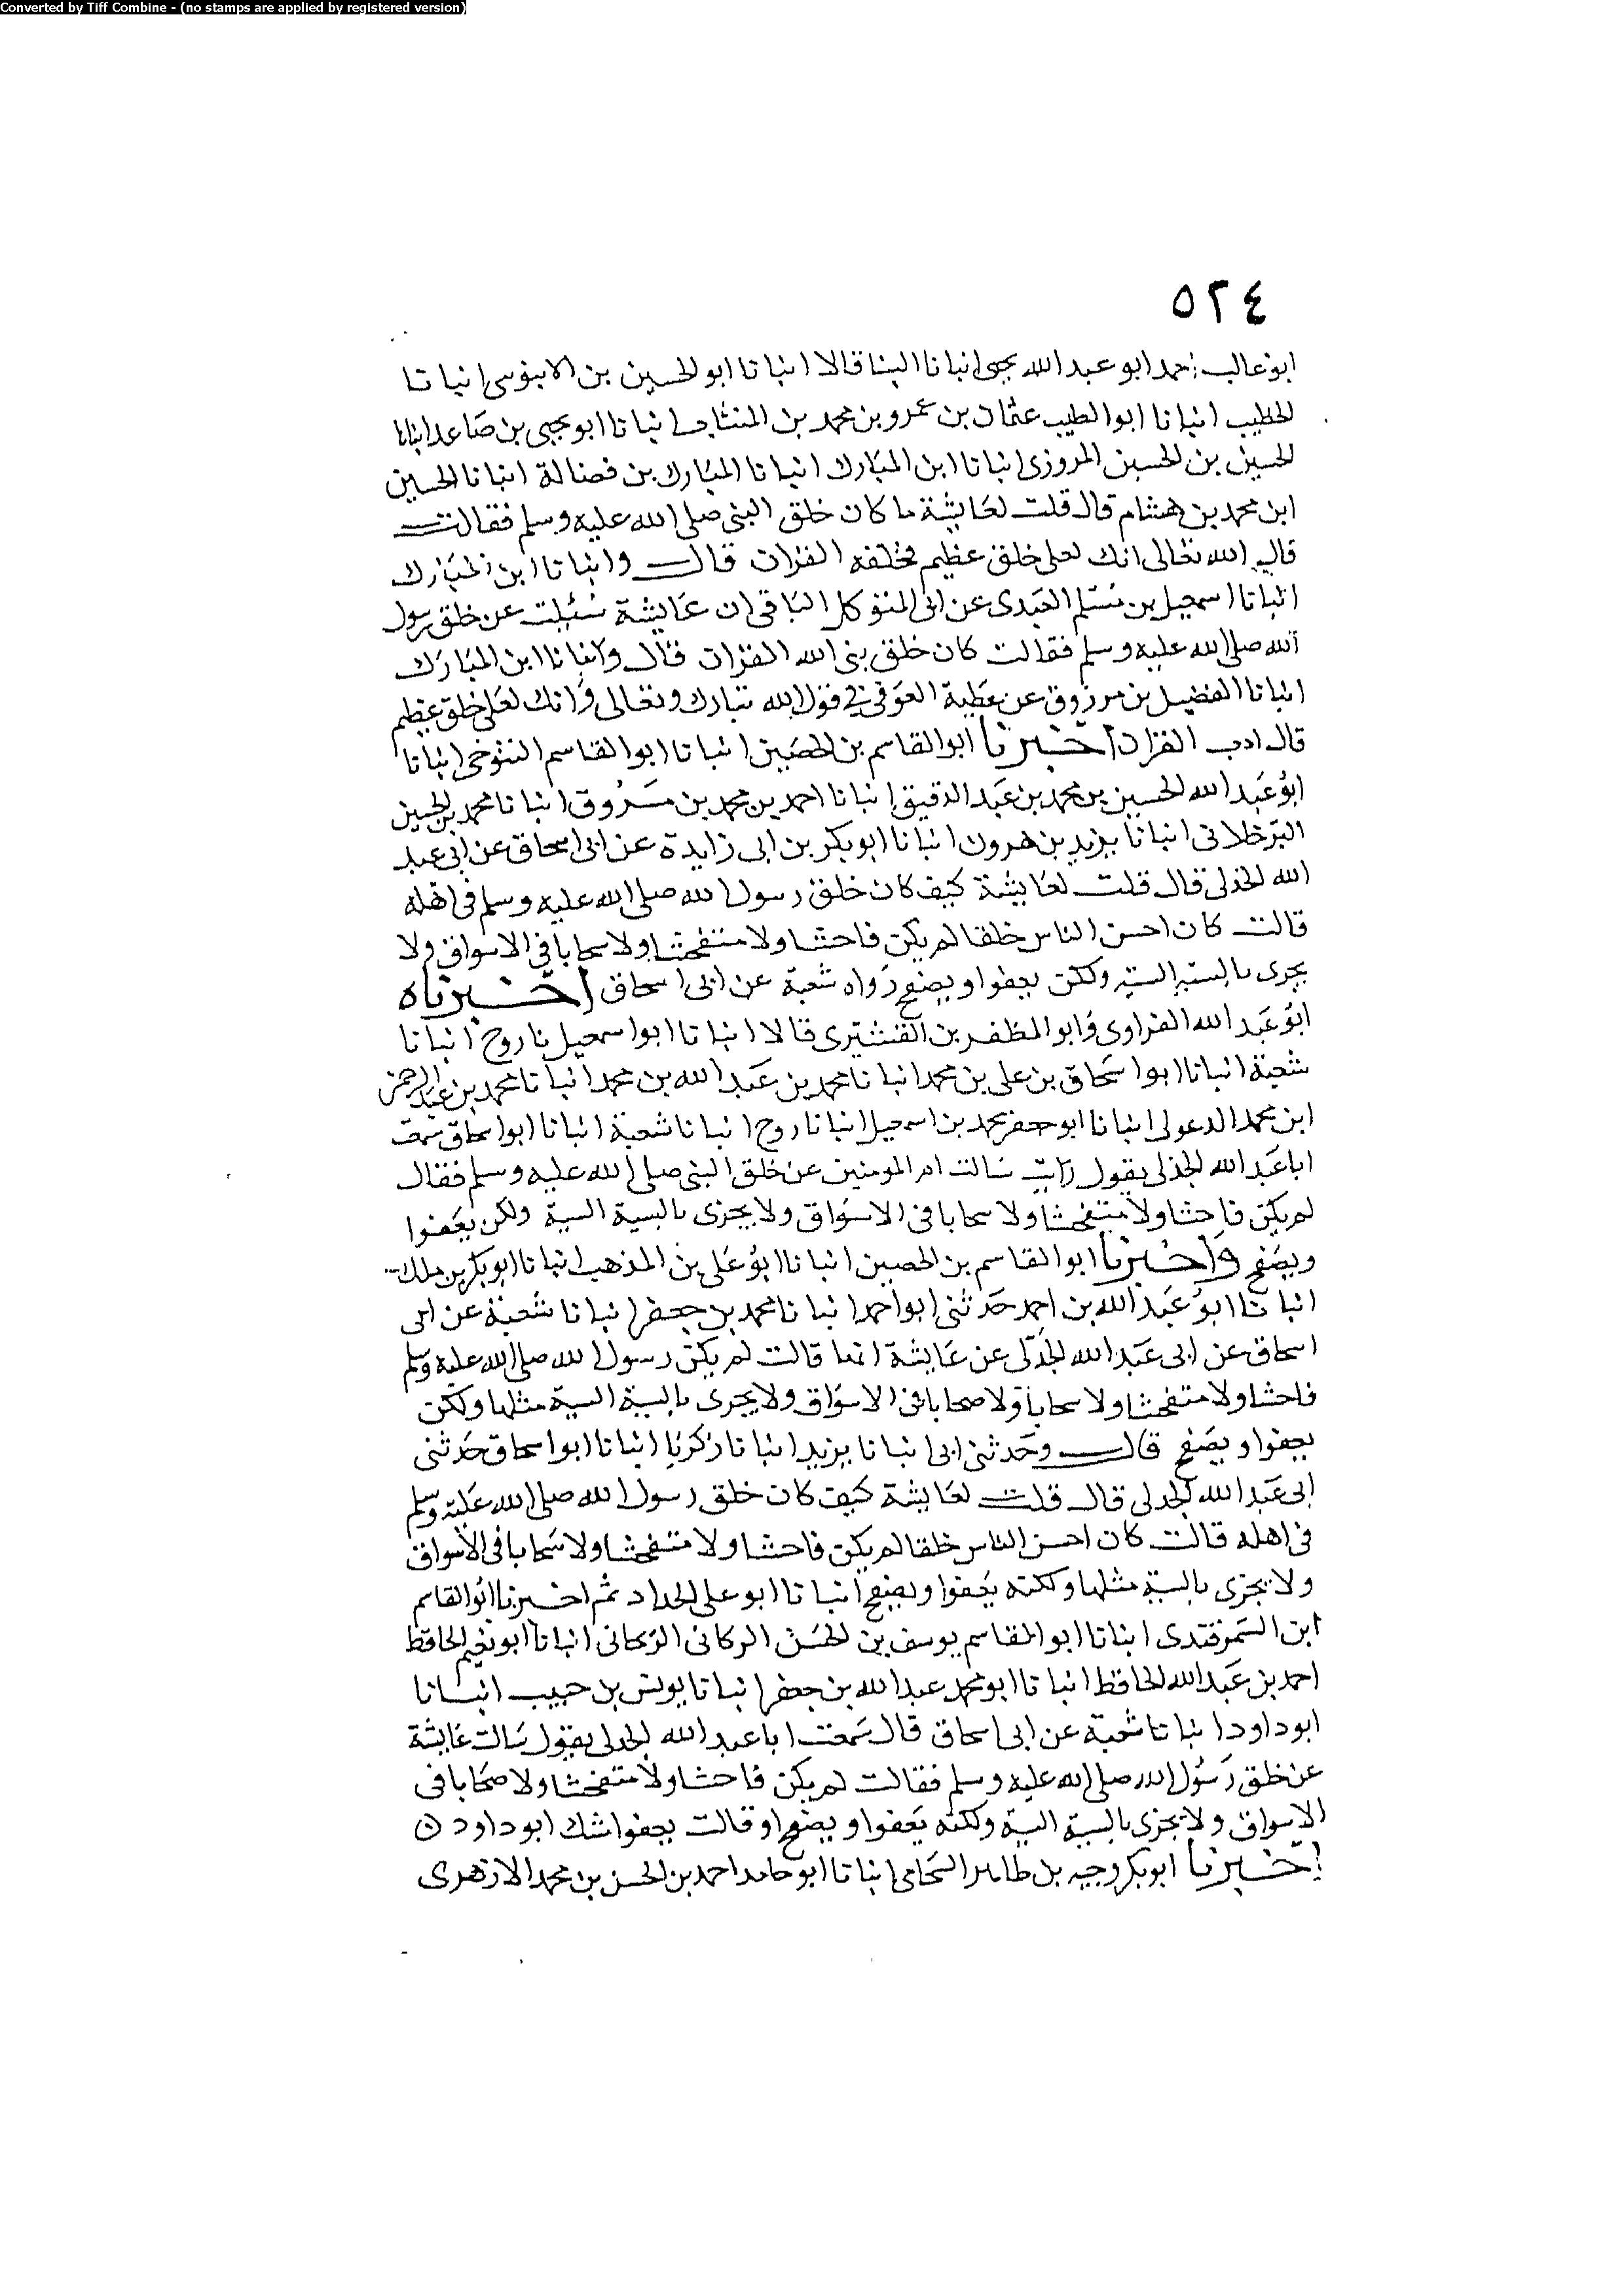 Converted by Tiff Combine - (no stamps are applied by registered version)
٥٢٤
ابو غالب احمد ابو عبد الله يحيى انبانا البنا قالا انبانا ابو الحسين بن الابنوسى انبانا
الخطيب انبانا ابو الطيب عثمان بن عمرو بن محمد بن المنتاب انبانا ابو يحيى بن صاعد انبانا
الحسين بن الحسين المروزى انبانا ابن المبارك انبانا المبارك بن فضالة انبانا الحسين
ابن محمد بن هشام قال قلت لعايشة ما كان خلق النبى صلى الله عليه وسلم فقالت
قال الله تعالى انك لعلى خلق عظيم فخلقه القران قال وانبانا ابن المبارك
انبانا اسمعيل بن مسلم العبدى عن ابى المتوكل الباقى ان عايشة سئلت عن خلق رسول
الله صلى الله عليه وسلم فقالت كان خلق نبى الله القران قال وانبانا ابن المبارك
انبانا الفضيل بن مرزوق عن عطية العوفى فى قول الله تبارك وتعالى وانك لعلى خلق عظيم
قال ادب القران اخبرنا ابو القاسم بن الحصين انبانا ابو القاسم التنوخى انبانا
ابو عبد الله الحسين بن محمد بن عبد الدقيق انبانا احمد بن محمد بن مسروق انبانا محمد بن الحسين
البرخلانى انبانا يزيد بن هرون انبانا ابو بكر بن ابى زايدة عن ابى اسحاق عن ابى عبد
الله الجدلى قال قلت لعايشة كيف كان خلق رسول الله صلى الله عليه وسلم فى اهله
قالت كان احسن الناس خلقا لم يكن فاحشا ولا متفحشا ولا سحابا فى الاسواق ولا
يجزى بالسية السية ولكن يعفوا ويصفح رواه شعبة عن ابى اسحاق اخبرناه
ابو عبد الله الفراوى وابو المظفر بن القشيرى قالا انبانا ابو اسمعيل نا روح انبانا
شعبة انبانا ابو اسحاق بن على بن محمد انبانا محمد بن عبد الله بن محمد انبانا محمد بن عبد الرحمن
ابن محمد الدعولى انبانا ابو جعفر محمد بن اسمعيل انبانا روح انبانا شعبة انبانا ابو اسحاق سمعت
ابا عبد الله الجدلى يقول سالت ام المومنين عن خلق النبى صلى الله عليه وسلم فقال
لم يكن فاحشا ولا متفحشا ولا سحابا فى الاسواق ولا يجزى بالسية السية ولكن يعفوا
ويصفح واخبرنا ابو القاسم بن الحصين انبانا ابو على بن المذهب انبانا ابو بكر بن ملك
انبانا ابو عبد الله بن احمد حدثنى ابو احمد انبانا محمد بن جعفر انبانا شعبة عن ابى
اسحاق عن ابى عبد الله الجدلى عن عايشة انها قالت لم يكن رسول الله صلى الله عليه وسلم
فاحشا ولا متفحشا ولا سحابا ولا صحابا فى الاسواق ولا يجزى بالسية السية مثلها ولكن
يعفوا ويصفح قال وحدثنى ابى انبانا يزيد انبانا زكريا انبانا ابو اسحاق حدثنى
ابى عبد الله الجدلى قال قلت لعايشة كيف كان خلق رسول الله صلى الله عليه وسلم
فى اهله قالت كان احسن الناس خلقا لم يكن فاحشا ولا متفحشا ولا سحابا فى الاسواق
ولا يجزى بالسية مثلها ولكنه يعفوا ويصفح انبانا ابو على الحداد ثم اخبرنا ابو القاسم
ابن السمرقندى انبانا ابو القاسم يوسف بن الحسن الزنجانى انبانا ابو نعيم الحافظ
احمد بن عبد الله الحافظ انبانا ابو محمد عبد الله بن جعفر انبانا يونس بن حبيب انبانا
ابو داود انبانا شعبة عن ابى اسحاق قال سمعت ابا عبد الله الجدلى يقول سالت عايشة
عن خلق رسول الله صلى الله عليه وسلم فقالت لم يكن فاحشا ولا متفحشا ولا صحابا فى
الاسواق ولا يجزى بالسية السية ولكنه يعفوا ويصفح او قالت يعفوا شك ابو داود
اخبرنا ابو بكر وجيه بن طاهر الشحامى انبانا ابو حامد احمد بن الحسن بن محمد الازهرى